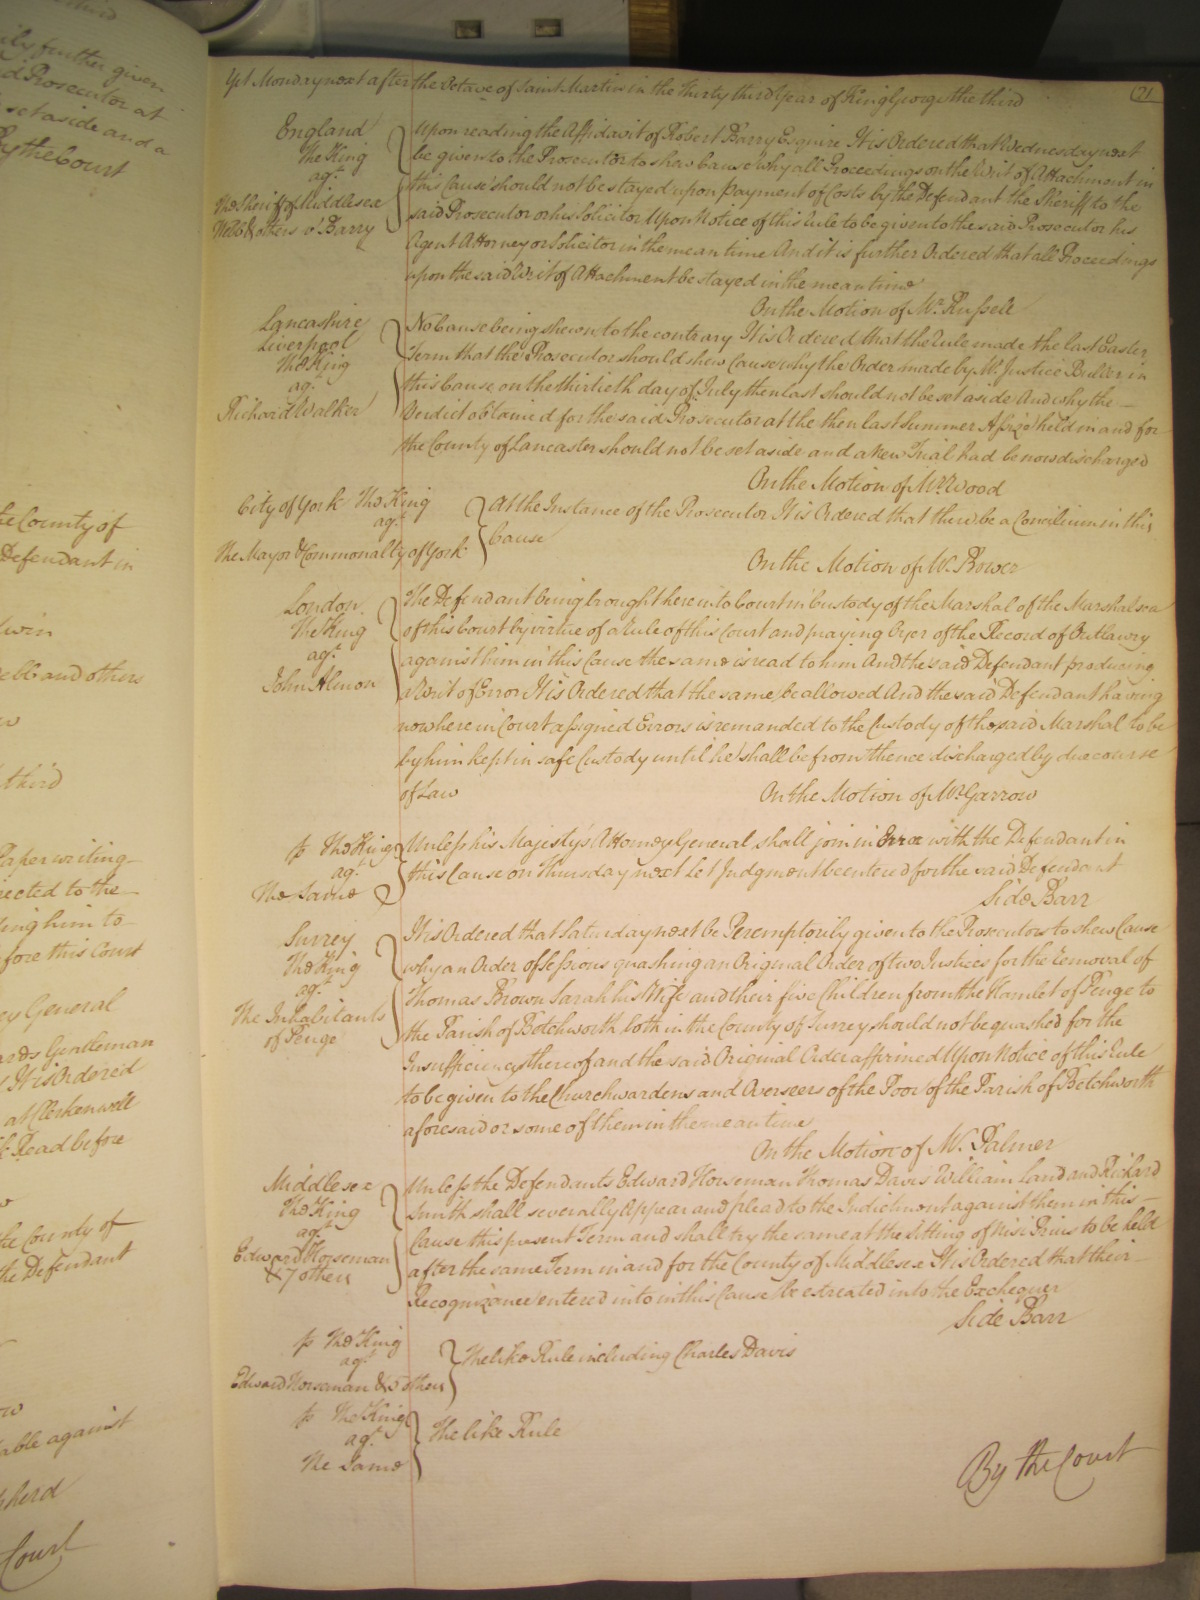 ily further given
id Prosecutor at
set aside and a
By the Court
he County of
Defendant in
ebb and others
third
Paper writing
rected to the
ing him to
fore this Court
ey General
ards Gentleman
It is Ordered
at Clerkenwell
Read before
the County of
the Defendant
able against
pherd
Court
Yet Monday next after the Octave of Saint Martin in the Thirty third Year of King George the third
21
England
The King
agt
The Sheriff of Middlesex
Webb & others v Barry
Upon reading the Affidavit of Robert Barry Esquire It is Ordered that Wednesday next
be given to the Prosecutor to shew Cause why all Proceedings on the Writ of Attachment in
this Cause should not be stayed upon payment of Costs by the Defendant the Sheriff to the
said Prosecutor or his Solicitor Upon Notice of this Rule to be given to the said Prosecutor his
Agent Attorney or Solicitor in the mean time And it is further Ordered that all Proceedings
upon the said Writ of Attachment be stayed in the mean time
On the Motion of Mr. Russell
Lancashire
Liverpool
The King
agt
Richard Walker
No Cause being shewn to the contrary It is Ordered that the Rule made the last Easter
Term that the Prosecutor should shew Cause why the Order made by Mr. Justice Buller in
this Cause on the thirtieth day of July then last should not be set aside And why the
Verdict obtained for the said Prosecutor at the then last Summer Assize held in and for
the County of Lancaster should not be set aside and a New Trial had be now discharged
On the Motion of Mr. Wood
City of York The King
agt
The Mayor & Commonalty of York
At the Instance of the Prosecutor It is Ordered that there be a Concilium in this
Cause
On the Motion of Mr. Bower
London
The King
agt
John Almon
The Defendant being brought here into Court in Custody of the Marshal of the Marshalsea
of this Court by virtue of a Rule of this Court and praying Oyer of the Record of Outlawry
against him in this Cause the same is read to him And the said Defendant producing
a Writ of Error It is Ordered that the same be allowed And the said Defendant having
now here in Court assigned Errors is remanded to the Custody of the said Marshal to be
by him kept in safe Custody until he shall be from thence discharged by due course
of Law
On the Motion of Mr. Garrow
The King
agt
The Same
Unless his Majesty's Attorney General shall join in Error with the Defendant in
this Cause on Thursday next Let Judgment be entered for the said Defendant
Side Barr
Surrey
The King
agt
The Inhabitants
of Penge
It is Ordered that Saturday next be Peremptorily given to the Prosecutors to shew Cause
why an Order of Sessions quashing an Original Order of two Justices for the removal of
Thomas Brown Sarah his Wife and their five Children from the Hamlet of Penge to
the Parish of Betchworth both in the County of Surrey should not be quashed for the
Insufficiency thereof and the said Original Order affirmed Upon Notice of this Rule
to be given to the Churchwardens and Overseers of the Poor of the Parish of Betchworth
aforesaid or some of them in the mean time
On the Motion of Mr. Palmer
Middlesex
The King
agt
Edward Horseman
& 7 others
Unless the Defendants Edward Horseman Thomas Davis William Land and Richard
Smith shall severally Appear and plead to the Indictment against them in this
Cause this present Term and shall try the same at the Sitting of Nisi Prius to be held
after the same Term in and for the County of Middlesex It is Ordered that their
Recognizance entered into in this Cause be estreated into the Exchequer
Side Barr
The King
agt
Edward Horseman & others
The like Rule including Charles Davis
The King
agt
The Same
The like Rule
By the Court